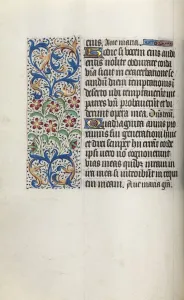 eius. Aue maria.
Hodie si vocem eius audi
eritis nolite obdurare corda
vr̄a sicut in exacerbatione se
cundum diem temptationis in
deserto ubi temptauerunt me
patres vr̄i probauerunt et vi
derunt opera mea. Dñs
Quadraginta annis proxi
mus fui generationi huic
et dixi semper hii errant corde
ipsi vero nō cognouerunt
vias meas quibus iuraui
in ira mea si introibunt in re
quiem meam. Aue maria gra.